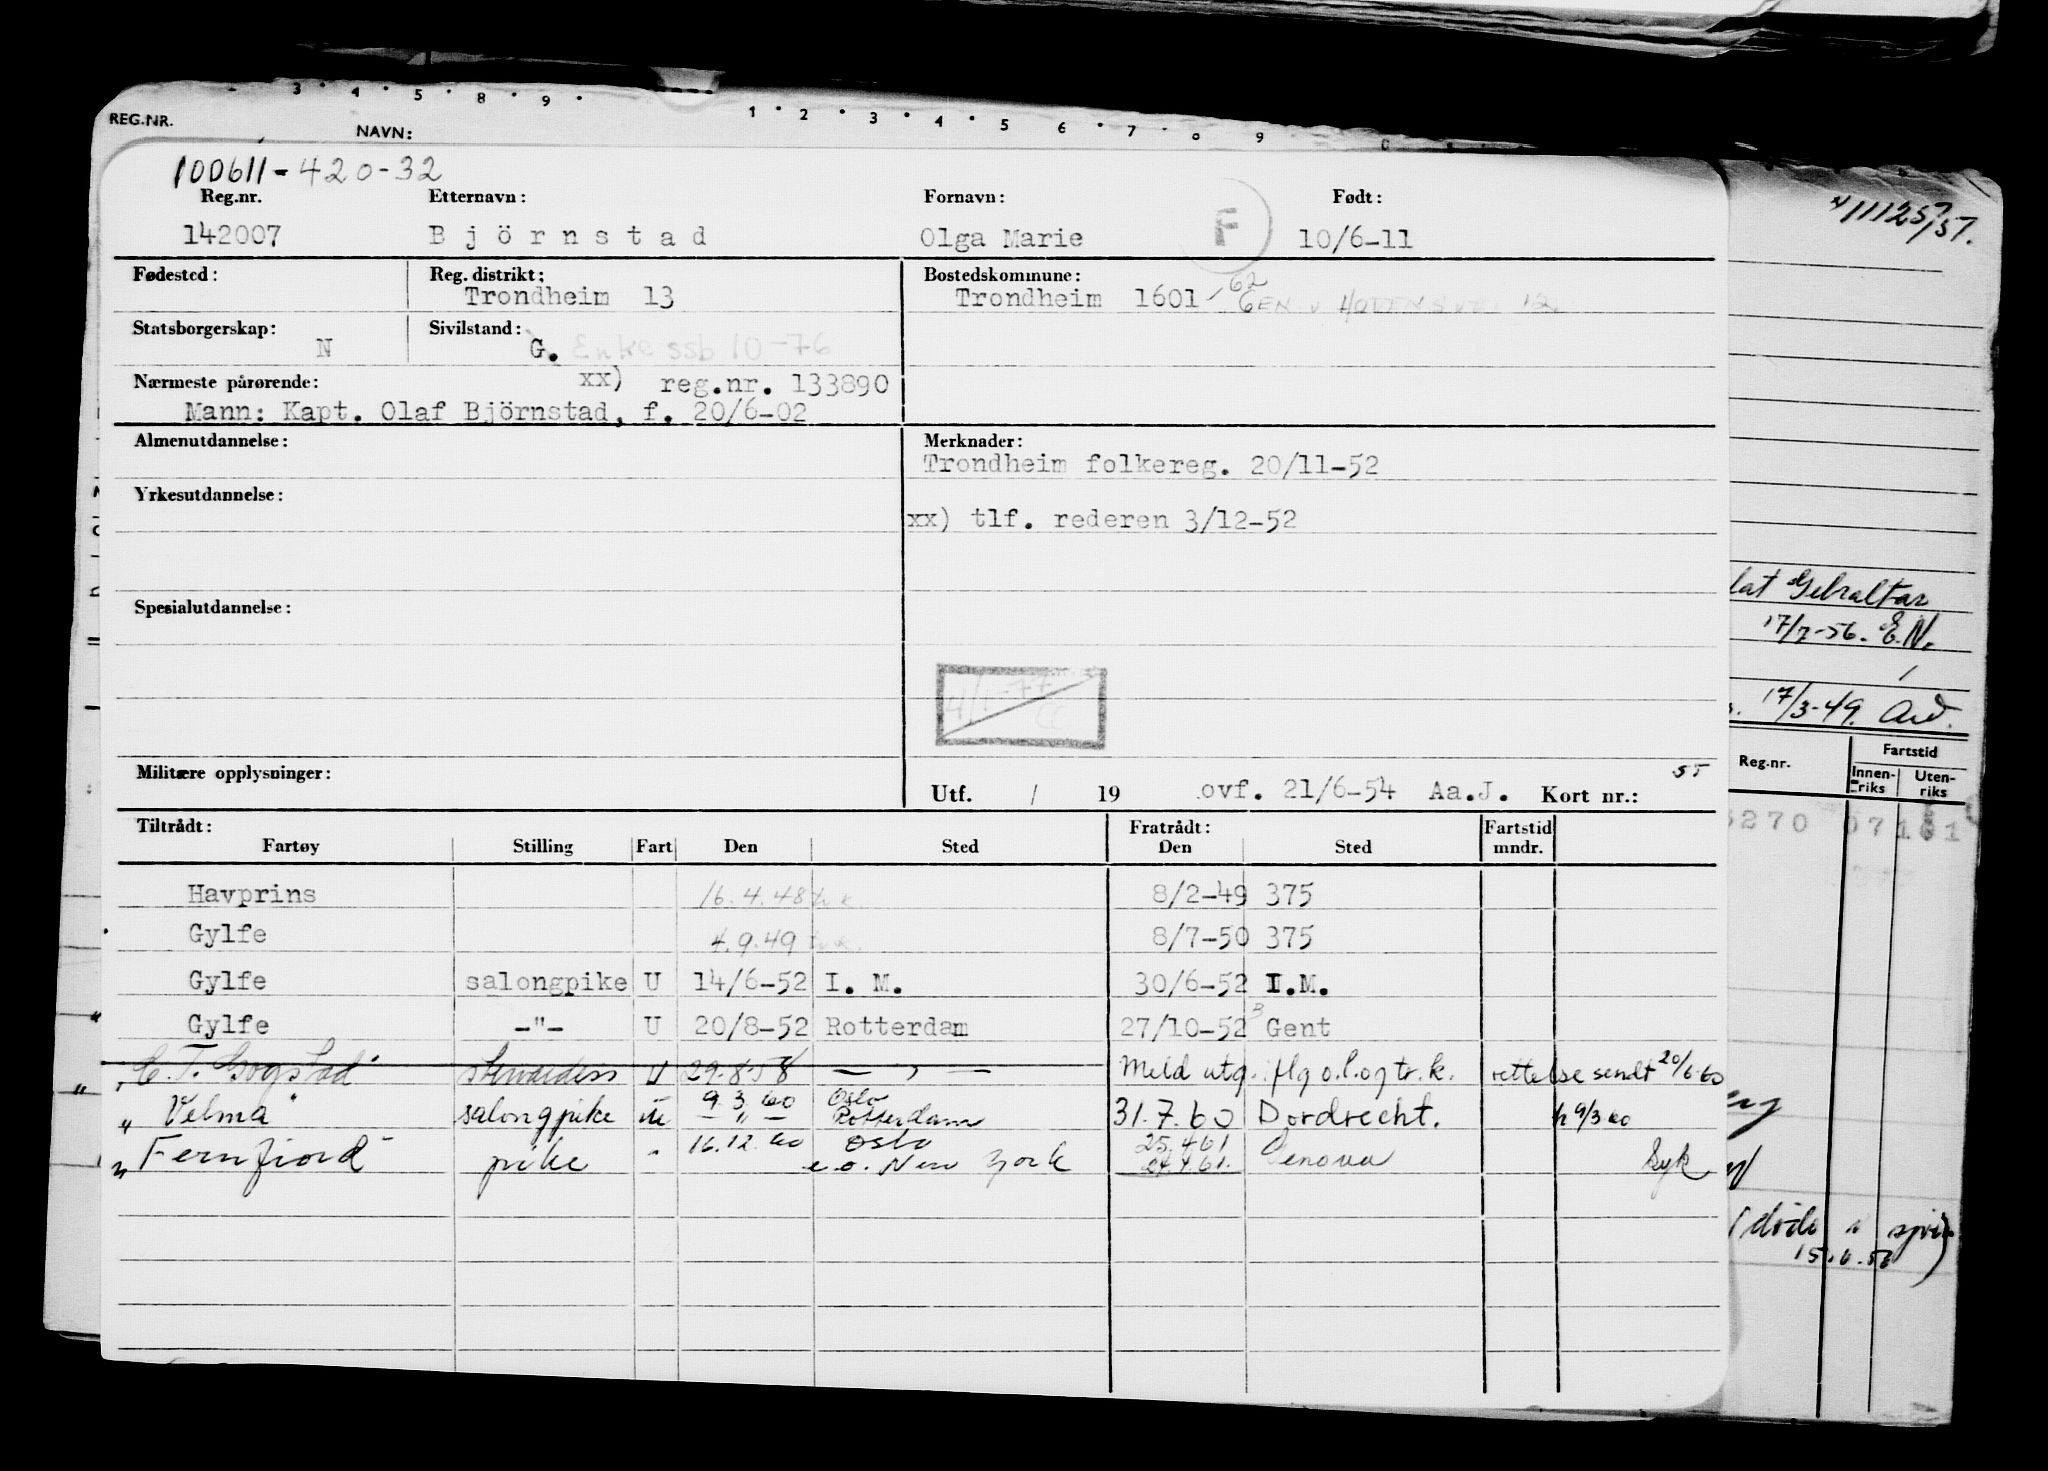 3 · 4 · 5 8 · 9 · 1 · 2 · 3 · 4 · 5 6 · 7 · 9
REG.NR. NAVN:
100611-420-32
Reg.nr. Etternavn: Fornavn: Født:
142007 Björnstad Olga Marie F 10/6-11
Fødested: Reg. distrikt: Bostedskommune:
Trondheim 13 Trondheim 1601 62
Statsborgerskap: Sivilstand:
N G. Enke ssb 10-76
Nærmeste pårørende: xx) reg.nr. 133890
Mann: Kapt. Olaf Björnstad, f. 20/6-02
Almenutdannelse: Merknader:
Trondheim folkereg. 20/11-52
Yrkesutdannelse:
xx) tlf. rederen 3/12-52
Spesialutdannelse:
4/1-77
CC
Militære opplysninger:
Utf. / 19 ovf. 21/6-54 Aa.J. Kort nr.: 55
Tiltrådt: Fratrådt: Fartstid
Fartøy Stilling Fart Den Sted Den Sted mndr.
Havprins 16.4.48 8/2-49 375
Gylfe 4.9.49 8/7-50 375
Gylfe salongpike U 14/6-52 I. M. 30/6-52 I.M.
Gylfe -"- U 20/8-52 Rotterdam 27/10-52 Gent
" C.T. Gogstad" U 29.8.58 — " — Meld utg. iflg o.l. og tr.k. rettelse sendt 20/6-60
" Velma" salongpike 9.3.60 Oslo
— " — Rotterdam 31.7.60 Dordrecht. 9/3 60
" Fernfiord" pike " 16.12.60 Oslo 25.4.61
e.o. New York 24.4.61. Genova Syk
111257/57.
lat Gibraltar
17/7-56. E.N.
17/3-49. Avd.
Reg.nr. Fartstid
Innen-riks Uten-riks
5270
15.6.56